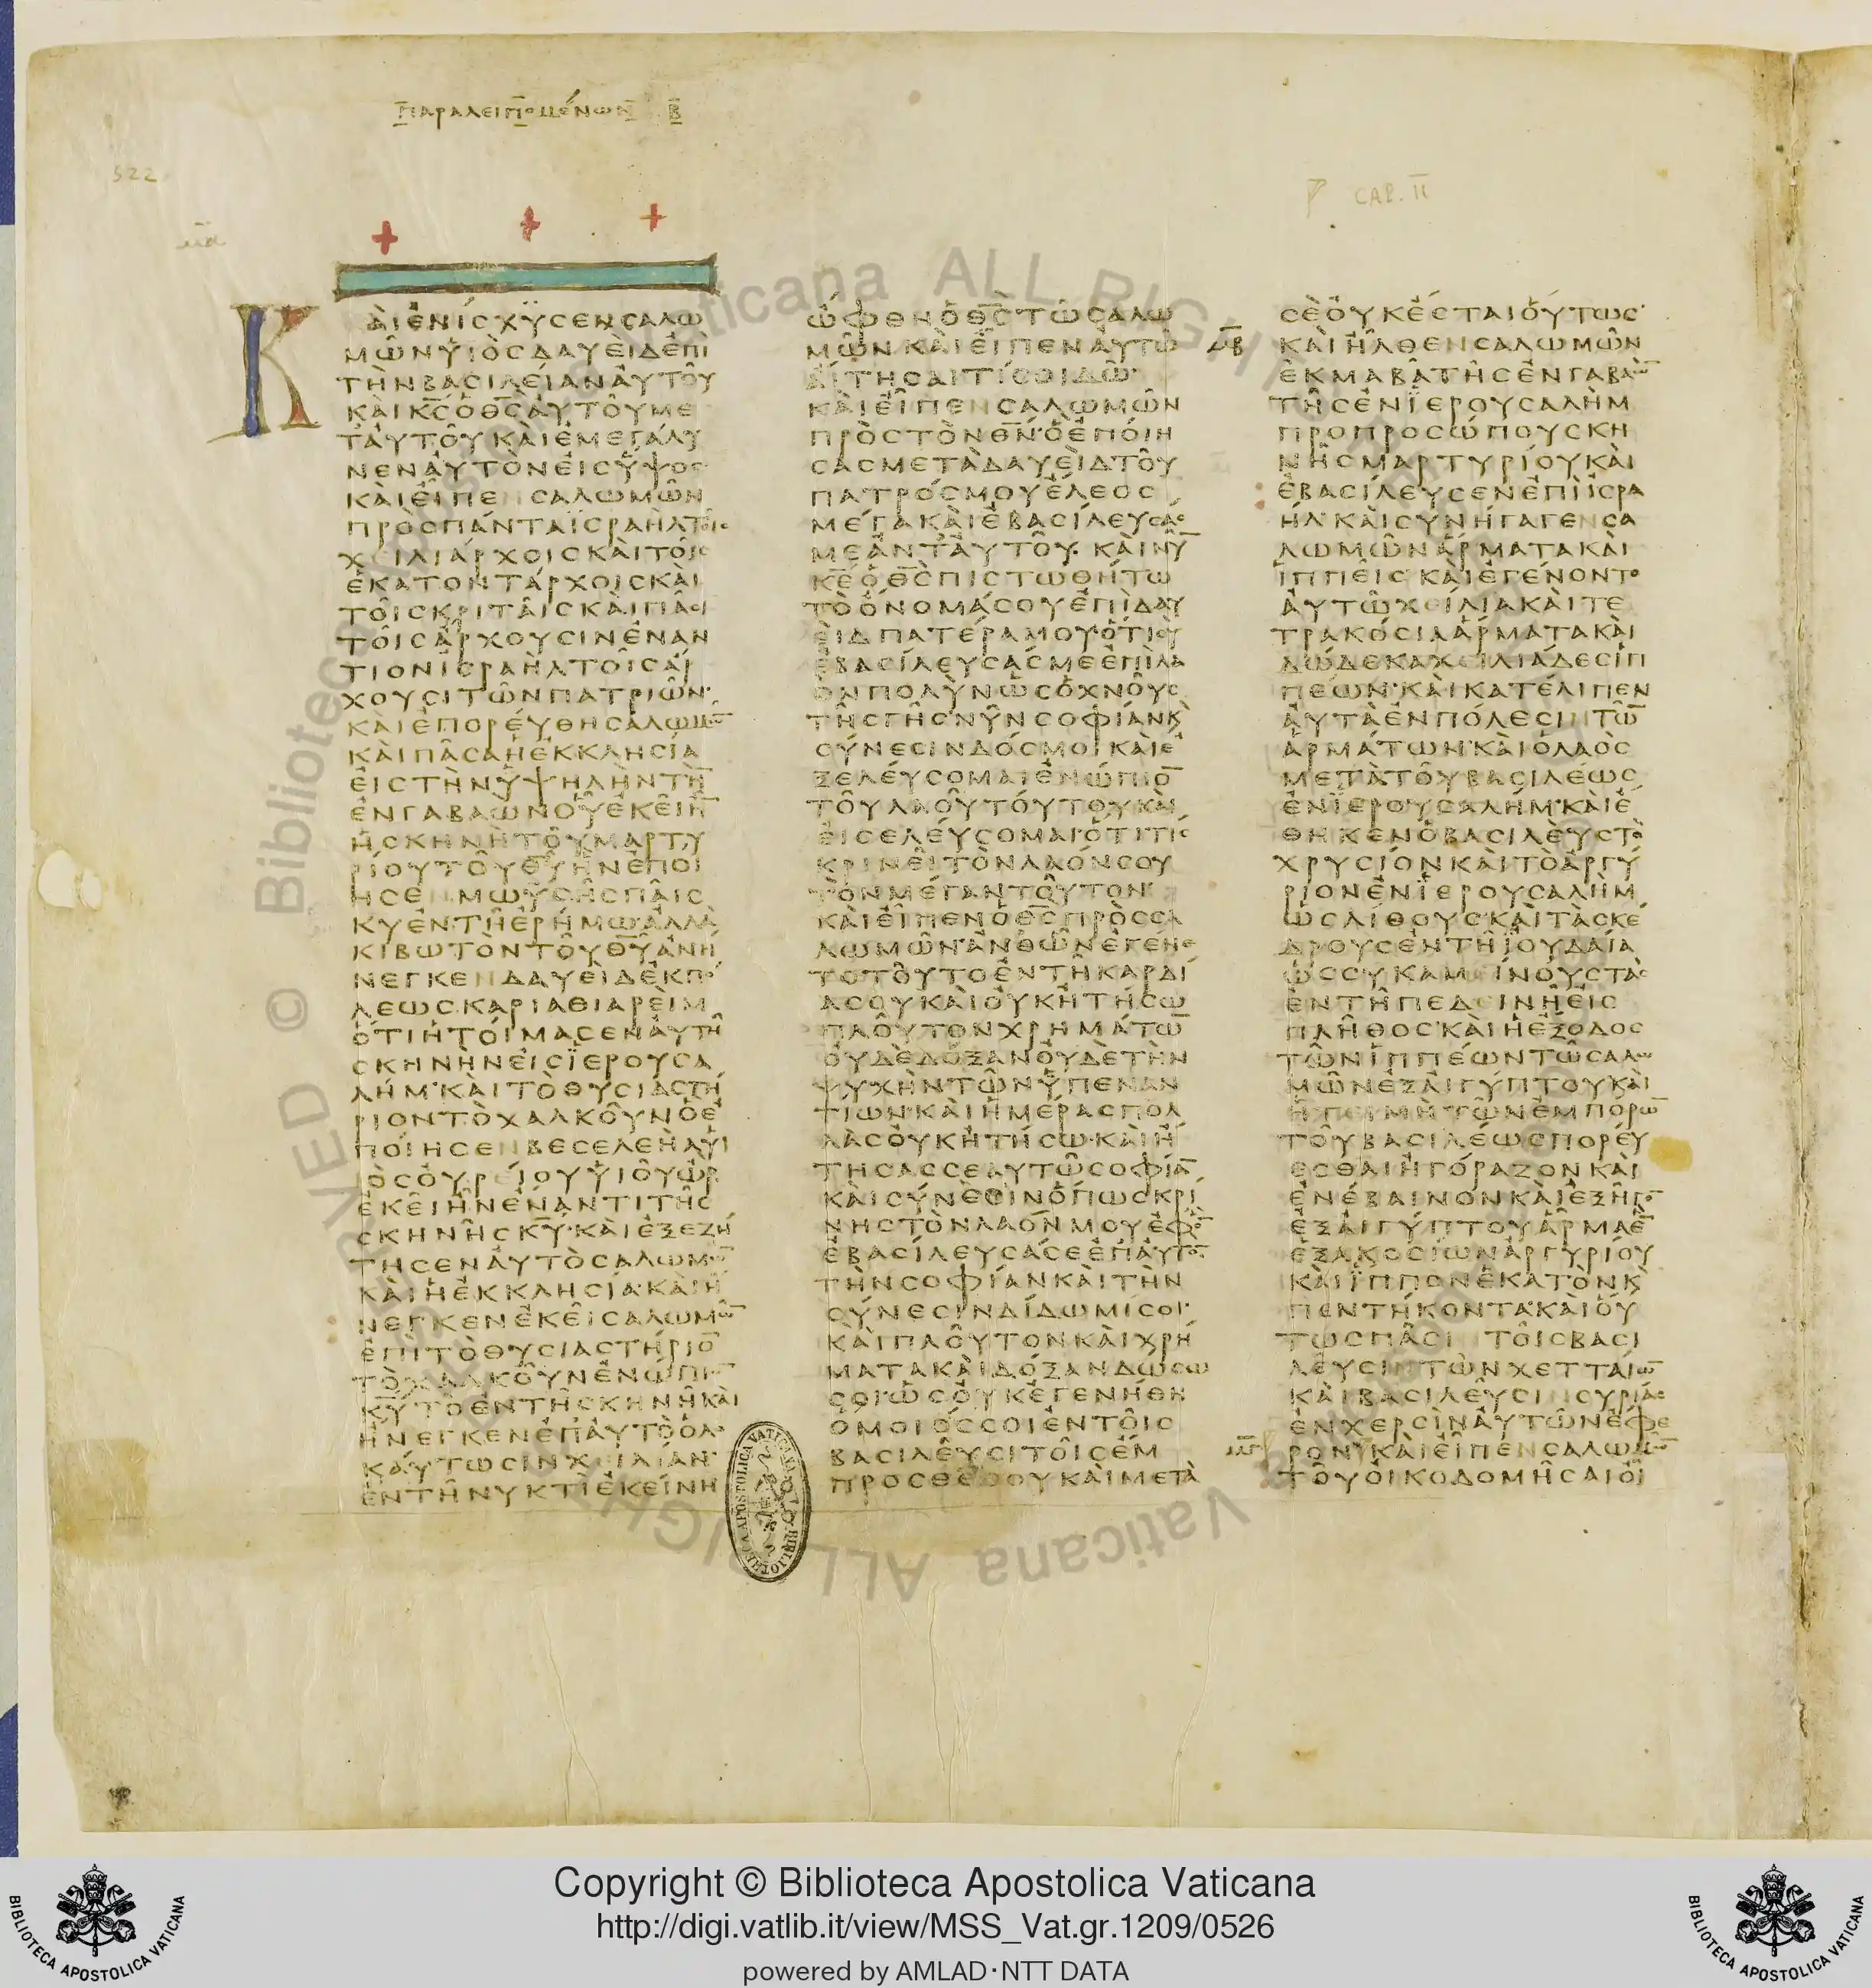 ΠΑΡΑΛΕΙΠΟΜΕΝΩΝ Β
522
CAP. II
ΚΑΙ ΕΝΙΣΧΥΣΕΝ ΣΑΛΩ
ΜΩΝ ΥΙΟΣ ΔΑΥΕΙΔ ΕΠΙ
ΤΗΝ ΒΑΣΙΛΕΙΑΝ ΑΥΤΟΥ
ΚΑΙ ΚΣ Ο ΘΣ ΑΥΤΟΥ ΜΕ
Τ ΑΥΤΟΥ ΚΑΙ ΕΜΕΓΑΛΥ
ΝΕΝ ΑΥΤΟΝ ΕΙΣ ΥΨΟΣ
ΚΑΙ ΕΙΠΕΝ ΣΑΛΩΜΩΝ
ΠΡΟΣ ΠΑΝΤΑ ΙΣΡΑΗΛ ΤΟΙΣ
ΧΕΙΛΙΑΡΧΟΙΣ ΚΑΙ ΤΟΙΣ
ΕΚΑΤΟΝΤΑΡΧΟΙΣ ΚΑΙ
ΤΟΙΣ ΚΡΙΤΑΙΣ ΚΑΙ ΠΑΣΙ
ΤΟΙΣ ΑΡΧΟΥΣΙΝ ΕΝΑΝ
ΤΙΟΝ ΙΣΡΑΗΛ ΤΟΙΣ ΑΡ
ΧΟΥΣΙ ΤΩΝ ΠΑΤΡΙΩΝ·
ΚΑΙ ΕΠΟΡΕΥΘΗ ΣΑΛΩΜΩ̅
ΚΑΙ ΠΑΣΑ Η ΕΚΚΛΗΣΙΑ
ΕΙΣ ΤΗΝ ΥΨΗΛΗΝ ΤΗ̅
ΕΝ ΓΑΒΑΩΝ ΟΥ ΕΚΕΙ Η̅
Η ΣΚΗΝΗ ΤΟΥ ΜΑΡΤΥ
ΡΙΟΥ ΤΟΥ ΘΥ ΗΝ ΕΠΟΙ
ΗΣΕΝ ΜΩΥΣΗΣ ΠΑΙΣ
ΚΥ ΕΝ ΤΗ ΕΡΗΜΩ ΑΛΛΑ
ΚΙΒΩΤΟΝ ΤΟΥ ΘΥ ΑΝΗ
ΝΕΓΚΕΝ ΔΑΥΕΙΔ ΕΚ ΠΟ
ΛΕΩΣ ΚΑΡΙΑΘΙΑΡΕΙΜ
ΟΤΙ ΗΤΟΙΜΑΣΕΝ ΑΥΤΗ
ΣΚΗΝΗΝ ΕΙΣ ΙΕΡΟΥΣΑ
ΛΗΜ· ΚΑΙ ΤΟ ΘΥΣΙΑΣΤΗ
ΡΙΟΝ ΤΟ ΧΑΛΚΟΥΝ Ο Ε
ΠΟΙΗΣΕΝ ΒΕΣΕΛΕΗΛ ΥΙ
ΟΣ ΟΥΡΕΙΟΥ ΥΙΟΥ ΩΡ
ΕΚΕΙ ΗΝ ΕΝΑΝΤΙ ΤΗΣ
ΣΚΗΝΗΣ ΚΥ· ΚΑΙ ΕΞΕΖΗ
ΤΗΣΕΝ ΑΥΤΟ ΣΑΛΩΜΩ̅
ΚΑΙ Η ΕΚΚΛΗΣΙΑ· ΚΑΙ Η
ΝΕΓΚΕΝ ΕΚΕΙ ΣΑΛΩΜΩ̅
ΕΠΙ ΤΟ ΘΥΣΙΑΣΤΗΡΙΟ̅
ΤΟ ΧΑΛΚΟΥΝ ΕΝΩΠΙΟ̅
ΚΥ ΤΟ ΕΝ ΤΗ ΣΚΗΝΗ ΚΑΙ
ΗΝΕΓΚΕΝ ΕΠ ΑΥΤΟ ΟΛΟ
ΚΑΥΤΩΣΙΝ ΧΕΙΛΙΑΝ·
ΕΝ ΤΗ ΝΥΚΤΙ ΕΚΕΙΝΗ
ΩΦΘΗ Ο ΘΣ ΤΩ ΣΑΛΩ
ΜΩΝ ΚΑΙ ΕΙΠΕΝ ΑΥΤΩ
ΑΙΤΗΣΑΙ ΤΙ ΣΟΙ ΔΩ·
ΚΑΙ ΕΙΠΕΝ ΣΑΛΩΜΩΝ
ΠΡΟΣ ΤΟΝ ΘΝ· Ο ΕΠΟΙΗ
ΣΑΣ ΜΕΤΑ ΔΑΥΕΙΔ ΤΟΥ
ΠΑΤΡΟΣ ΜΟΥ ΕΛΕΟΣ
ΜΕΓΑ ΚΑΙ ΕΒΑΣΙΛΕΥΣΑΣ
ΜΕ ΑΝΤ ΑΥΤΟΥ· ΚΑΙ ΝΥ̅
ΚΕ Ο ΘΣ ΠΙΣΤΩΘΗΤΩ
ΤΟ ΟΝΟΜΑ ΣΟΥ ΕΠΙ ΔΑΥ
ΕΙΔ ΠΑΤΕΡΑ ΜΟΥ· ΟΤΙ ΣΥ
ΕΒΑΣΙΛΕΥΣΑΣ ΜΕ ΕΠΙ ΛΑ
ΟΝ ΠΟΛΥΝ ΩΣ Ο ΧΝΟΥΣ
ΤΗΣ ΓΗΣ· ΝΥΝ ΣΟΦΙΑΝ Κ
ΣΥΝΕΣΙΝ ΔΟΣ ΜΟΙ ΚΑΙ Ε
ΞΕΛΕΥΣΟΜΑΙ ΕΝΩΠΙΟ̅
ΤΟΥ ΛΑΟΥ ΤΟΥΤΟΥ ΚΑΙ
ΕΙΣΕΛΕΥΣΟΜΑΙ· ΟΤΙ ΤΙΣ
ΚΡΙΝΕΙ ΤΟΝ ΛΑΟΝ ΣΟΥ
ΤΟΝ ΜΕΓΑΝ ΤΟΥΤΟΝ
ΚΑΙ ΕΙΠΕΝ Ο ΘΣ ΠΡΟΣ ΣΑ
ΛΩΜΩΝ· ΑΝΘ ΩΝ ΕΓΕΝΕ
ΤΟ ΤΟΥΤΟ ΕΝ ΤΗ ΚΑΡΔΙ
Α ΣΟΥ ΚΑΙ ΟΥΚ ΗΤΗΣΩ
ΠΛΟΥΤΟΝ ΧΡΗΜΑΤΩ̅
ΟΥΔΕ ΔΟΞΑΝ ΟΥΔΕ ΤΗΝ
ΨΥΧΗΝ ΤΩΝ ΥΠΕΝΑΝ
ΤΙΩΝ· ΚΑΙ ΗΜΕΡΑΣ ΠΟΛ
ΛΑΣ ΟΥΚ ΗΤΗΣΩ· ΚΑΙ Η
ΤΗΣΑΣ ΣΕΑΥΤΩ ΣΟΦΙΑ̅
ΚΑΙ ΣΥΝΕΣΙΝ ΟΠΩΣ ΚΡΙ
ΝΗΣ ΤΟΝ ΛΑΟΝ ΜΟΥ ΕΦ Ο̅
ΕΒΑΣΙΛΕΥΣΑ ΣΕ ΕΠ ΑΥΤΟ̅
ΤΗΝ ΣΟΦΙΑΝ ΚΑΙ ΤΗΝ
ΣΥΝΕΣΙΝ ΔΙΔΩΜΙ ΣΟΙ·
ΚΑΙ ΠΛΟΥΤΟΝ ΚΑΙ ΧΡΗ
ΜΑΤΑ ΚΑΙ ΔΟΞΑΝ ΔΩΣΩ
ΣΟΙ ΩΣ ΟΥΚ ΕΓΕΝΗΘΗ
ΟΜΟΙΟΣ ΣΟΙ ΕΝ ΤΟΙΣ
ΒΑΣΙΛΕΥΣΙ ΤΟΙΣ ΕΜ
ΠΡΟΣΘΕ ΣΟΥ ΚΑΙ ΜΕΤΑ
ΣΕ ΟΥΚ ΕΣΤΑΙ ΟΥΤΩΣ·
ΚΑΙ ΗΛΘΕΝ ΣΑΛΩΜΩΝ
ΕΚ ΜΑ ΒΑ ΤΗΣ ΕΝ ΓΑΒΑΩ̅
ΤΗΣ ΕΝ ΙΕΡΟΥΣΑΛΗΜ
ΠΡΟ ΠΡΟΣΩΠΟΥ ΣΚΗ
ΝΗΣ ΜΑΡΤΥΡΙΟΥ ΚΑΙ
ΕΒΑΣΙΛΕΥΣΕΝ ΕΠΙ ΙΣΡΑ
ΗΛ· ΚΑΙ ΣΥΝΗΓΑΓΕΝ ΣΑ
ΛΩΜΩΝ ΑΡΜΑΤΑ ΚΑΙ
ΙΠΠΕΙΣ ΚΑΙ ΕΓΕΝΟΝΤΟ
ΑΥΤΩ ΧΕΙΛΙΑ ΚΑΙ ΤΕ
ΤΡΑΚΟΣΙΑ ΑΡΜΑΤΑ ΚΑΙ
ΔΩΔΕΚΑ ΧΕΙΛΙΑΔΕΣ ΙΠ
ΠΕΩΝ· ΚΑΙ ΚΑΤΕΛΙΠΕΝ
ΑΥΤΑ ΕΝ ΠΟΛΕΣΙΝ ΤΩ̅
ΑΡΜΑΤΩΝ· ΚΑΙ Ο ΛΑΟΣ
ΜΕΤΑ ΤΟΥ ΒΑΣΙΛΕΩΣ
ΕΝ ΙΕΡΟΥΣΑΛΗΜ· ΚΑΙ Ε
ΘΗΚΕΝ Ο ΒΑΣΙΛΕΥΣ ΤΟ
ΧΡΥΣΙΟΝ ΚΑΙ ΤΟ ΑΡΓΥ
ΡΙΟΝ ΕΝ ΙΕΡΟΥΣΑΛΗΜ
ΩΣ ΛΙΘΟΥΣ· ΚΑΙ ΤΑΣ ΚΕ
ΔΡΟΥΣ ΕΝ ΤΗ ΙΟΥΔΑΙΑ
ΩΣ ΣΥΚΑΜΕΙΝΟΥΣ ΤΑΣ
ΕΝ ΤΗ ΠΕΔΕΙΝΗ ΕΙΣ
ΠΛΗΘΟΣ· ΚΑΙ Η ΕΞΟΔΟΣ
ΤΩΝ ΙΠΠΕΩΝ ΤΩ ΣΑΛΩ
ΜΩΝ ΕΞ ΑΙΓΥΠΤΟΥ ΚΑΙ
Η ΤΙΜΗ ΤΩΝ ΕΜΠΟΡΩ̅
ΤΟΥ ΒΑΣΙΛΕΩΣ ΠΟΡΕΥ
ΕΣΘΑΙ ΗΓΟΡΑΖΟΝ ΚΑΙ
ΕΝΕΒΑΙΝΟΝ ΚΑΙ ΕΞΗΓΟ̅
ΕΞ ΑΙΓΥΠΤΟΥ ΑΡΜΑ Ε̅
ΕΞΑΚΟΣΙΩΝ ΑΡΓΥΡΙΟΥ
ΚΑΙ ΙΠΠΟΝ ΕΚΑΤΟΝ Κ
ΠΕΝΤΗΚΟΝΤΑ· ΚΑΙ ΟΥ
ΤΩΣ ΠΑΣΙΝ ΤΟΙΣ ΒΑΣΙ
ΛΕΥΣΙΝ ΤΩΝ ΧΕΤΤΑΙΩ̅
ΚΑΙ ΒΑΣΙΛΕΥΣΙΝ ΣΥΡΙΑΣ
ΕΝ ΧΕΡΣΙΝ ΑΥΤΩΝ ΕΦΕ
ΡΟΝ· ΚΑΙ ΕΙΠΕΝ ΣΑΛΩΜΩ̅
ΤΟΥ ΟΙΚΟΔΟΜΗΣΑΙ ΟΙ
BIBLIOTECA APOSTOLICA VATICANA
Copyright © Biblioteca Apostolica Vaticana
http://digi.vatlib.it/view/MSS_Vat.gr.1209/0526
powered by AMLAD·NTT DATA
BIBLIOTECA APOSTOLICA VATICANA